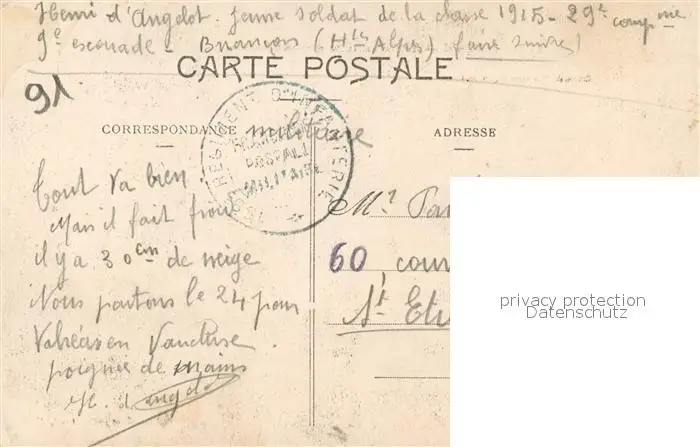 Henri d'Angelot. jeune soldat de la classe 1915 - 29e compnie
9e escouade - Briançon (Htes Alpes) (faire suivre)
CARTE POSTALE
91
CORRESPONDANCE militaire
ADRESSE
REGIMENT D'INFANTERIE
FRANCHISE
POSTALE
MILITAIRE
Tout va bien.
Mais il fait froid
il y a 30cm de neige
Nous partons le 24 pour
Valréas en Vaucluse.
poignée de mains
H. d'Angelot
Mr
60, cour
St Eti
privacy protection
Datenschutz